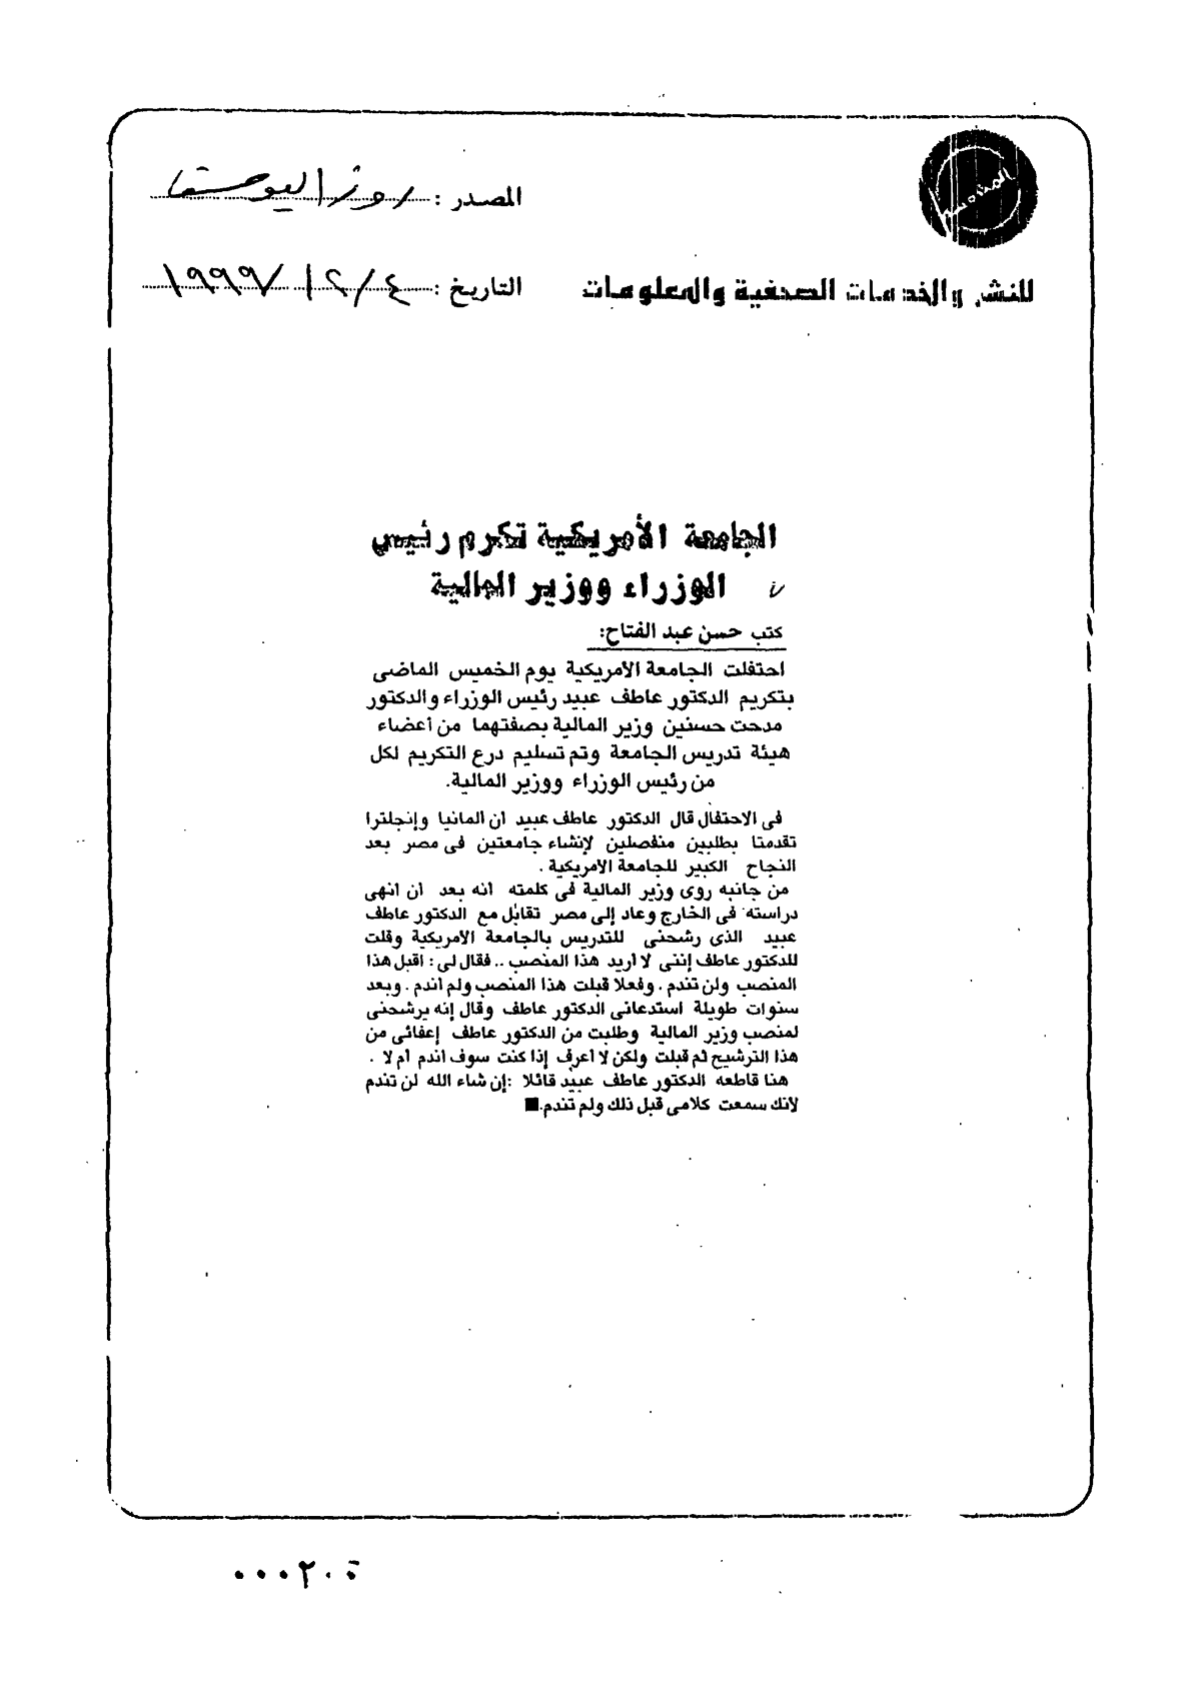 المصدر : روز اليوسف
للنشر والخدمات الصحفية والمعلومات
التاريخ : ٤/٢/١٩٩٧
الجامعة الأمريكية تكرم رئيس
الوزراء ووزير المالية
كتب حسن عبد الفتاح:
احتفلت الجامعة الامريكية يوم الخميس الماضى
بتكريم الدكتور عاطف عبيد رئيس الوزراء والدكتور
مدحت حسنين وزير المالية بصفتهما من أعضاء
هيئة تدريس الجامعة وتم تسليم درع التكريم لكل
من رئيس الوزراء ووزير المالية.
فى الاحتفال قال الدكتور عاطف عبيد ان المانيا وإنجلترا
تقدمتا بطلبين منفصلين لإنشاء جامعتين فى مصر بعد
النجاح الكبير للجامعة الامريكية .
من جانبه روى وزير المالية فى كلمته انه بعد ان انهى
دراسته فى الخارج وعاد إلى مصر تقابل مع الدكتور عاطف
عبيد الذى رشحنى للتدريس بالجامعة الامريكية وقلت
للدكتور عاطف إننى لا أريد هذا المنصب .. فقال لى : اقبل هذا
المنصب ولن تندم . وفعلا قبلت هذا المنصب ولم اندم . وبعد
سنوات طويلة استدعانى الدكتور عاطف وقال إنه يرشحنى
لمنصب وزير المالية وطلبت من الدكتور عاطف إعفائى من
هذا الترشيح ثم قبلت ولكن لا أعرف إذا كنت سوف اندم أم لا .
هنا قاطعه الدكتور عاطف عبيد قائلا :إن شاء الله لن تندم
لانك سمعت كلامى قبل ذلك ولم تندم.■